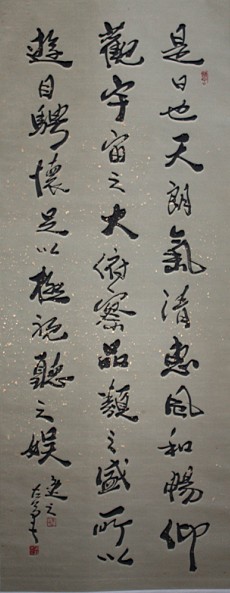 是日也天朗氣清惠風和暢仰
觀宇宙之大俯察品類之盛所以
遊目騁懷足以極視聽之娛